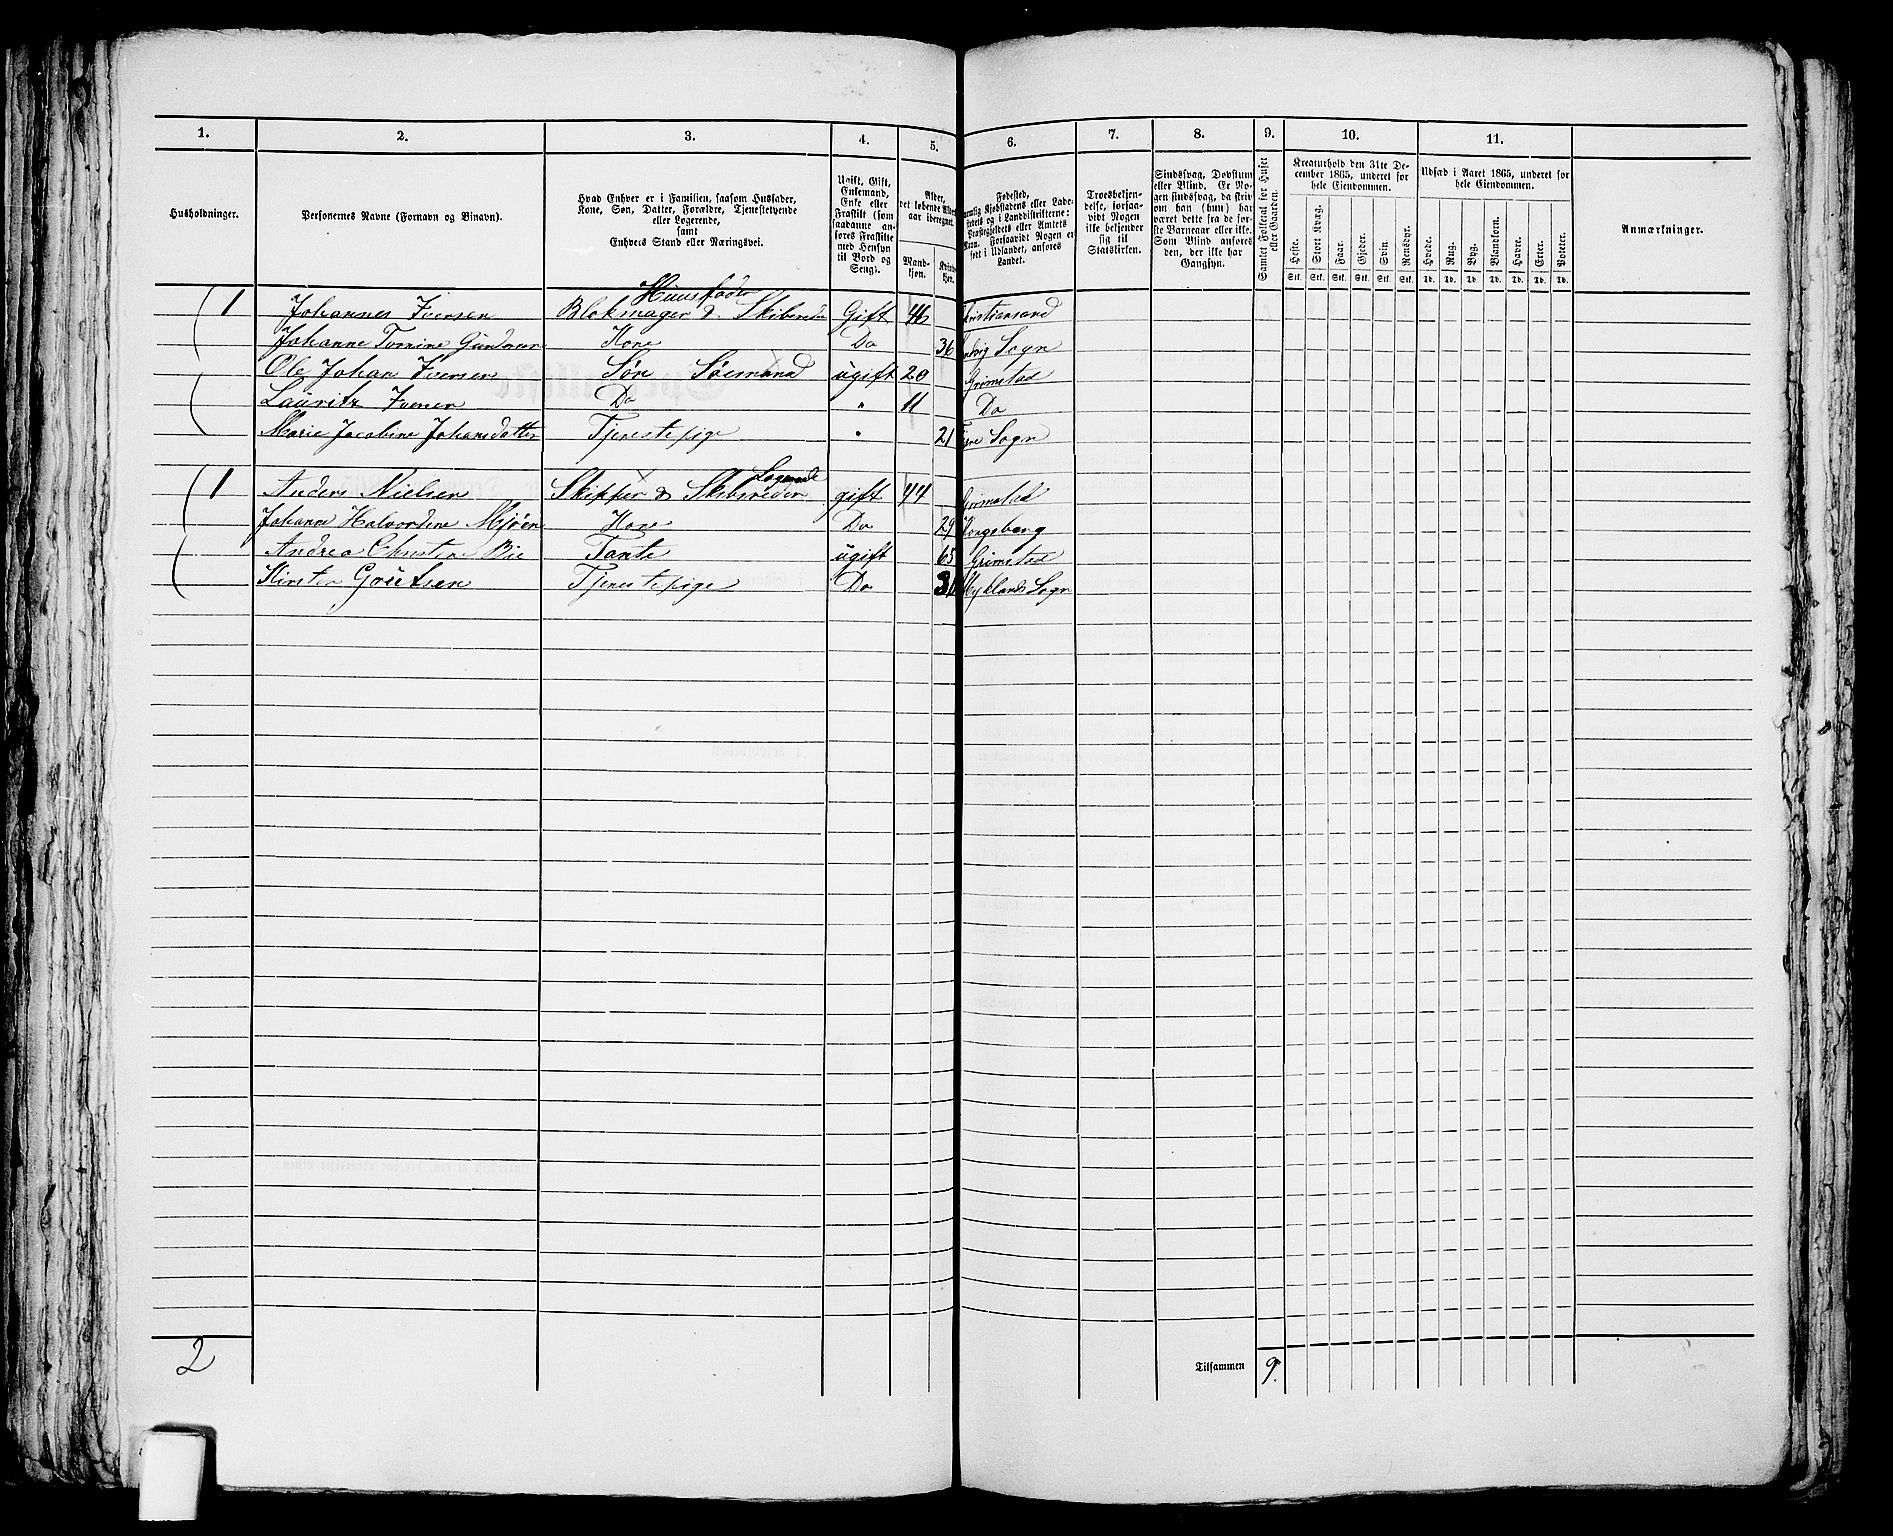 1. 2. 3. 4. 5. 6. 7. 8. 9. 10. 11.
Husholdninger.
Personernes Navne (Fornavn og Binavn).
Hvad Enhver er i Familien, saasom Husfader,
Kone, Søn, Datter, Forældre, Tjenestetyende
eller Logerende,
samt
Enhvers Stand eller Næringsvei.
Ugift, Gift,
Enkemand,
Enke eller
Fraskilt (som
saadanne an-
føres Fraskilte
med Hensyn
til Bord og
Seng).
Alder,
det løbende Alders-
aar iberegnet.
Mand-
kjøn.
Kvinde-
kjøn.
Fødested,
nemlig Kjøbstadens eller Lade-
stedets og i Landdistrikterne:
Præstegjeldets eller Amtets
Navn. Forsaavidt Nogen er
født i Udlandet, anføres
Landet.
Troesbekjen-
delse, forsaa-
vidt Nogen
ikke bekjender
sig til
Statskirken.
Sindssvag, Døvstum
eller Blind. Er No-
gen sindssvag, da skriv
om han (hun) har
været dette fra de før-
ste Barneaar eller ikke.
Som Blind anføres
den, der ikke har
Gangsyn.
Samlet Folketal for Huset
eller Gaarden.
Kreaturhold den 31te De-
cember 1865, underet for
hele Eiendommen.
Heste. Stort Kvæg. Faar. Gjeder. Svin. Rensdyr.
Stk. Stk. Stk. Stk. Stk. Stk.
Udsæd i Aaret 1865, underet for
hele Eiendommen.
Hvede. Rug. Byg. Blandkorn. Havre. Erter. Poteter.
Td. Td. Td. Td. Td. Td. Td.
Anmærkninger.
Huusfader
1 Johannes Iversen Blokmager & Skibsreder Gift 46 Christiansand
Johanne Tomine Kone Do 36 Sogn
Ole Johan Iversen Søn Søemand ugift 20 Grimstad
Lauritz Iversen Do " 11 Do
Marie Jacobine Johansdatter Tjenestepige " 21 Sogn
Logerende
1 Anders Nielsen Skipper & Skibsreder gift 44 Grimstad
Johanne Halvordine Kone Do 29 Kongsberg
Andrea Christine Bie Tante ugift 65 Grimstad
Kirsten Goutsen Tjenestepige Do Myklands Sogn
2 Tilsammen 9.